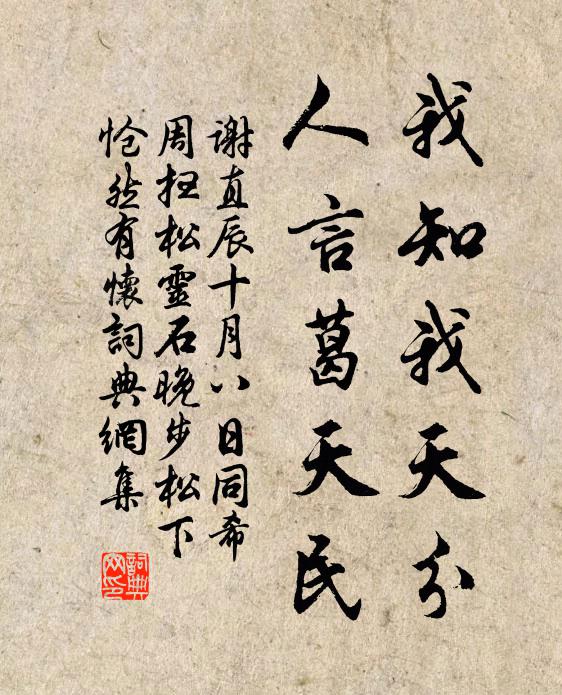 我知我天分
人言葛天民
謝直辰十月八日同希
周扫松靈石晚步松下
怆然有懷詞典網集
詞典
网印